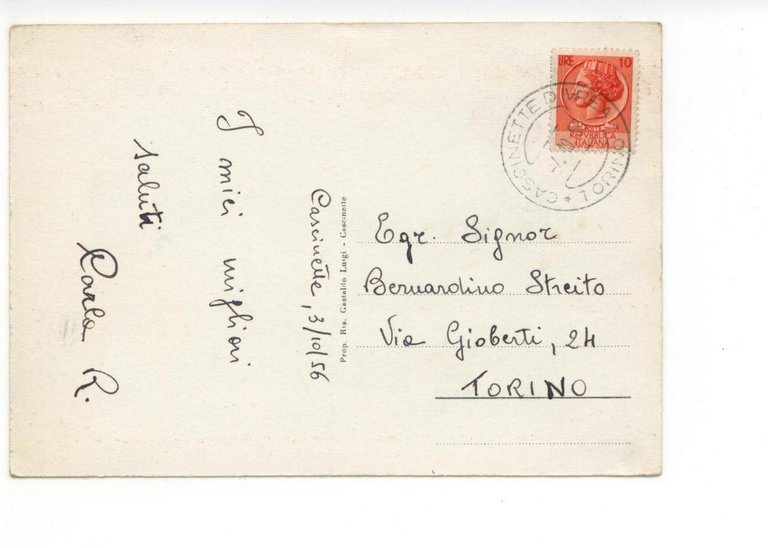 Cascinette, 3/10/56
I miei migliori
saluti
Carla R.
Prop. Ris. Gastaldo Luigi - Cascinette
LIRE 10
REPVBBLICA
ITALIANA
CASCINETTE D'IVREA
* TORINO
Egr. Signor
Bernardino Streito
Via Gioberti, 24
TORINO